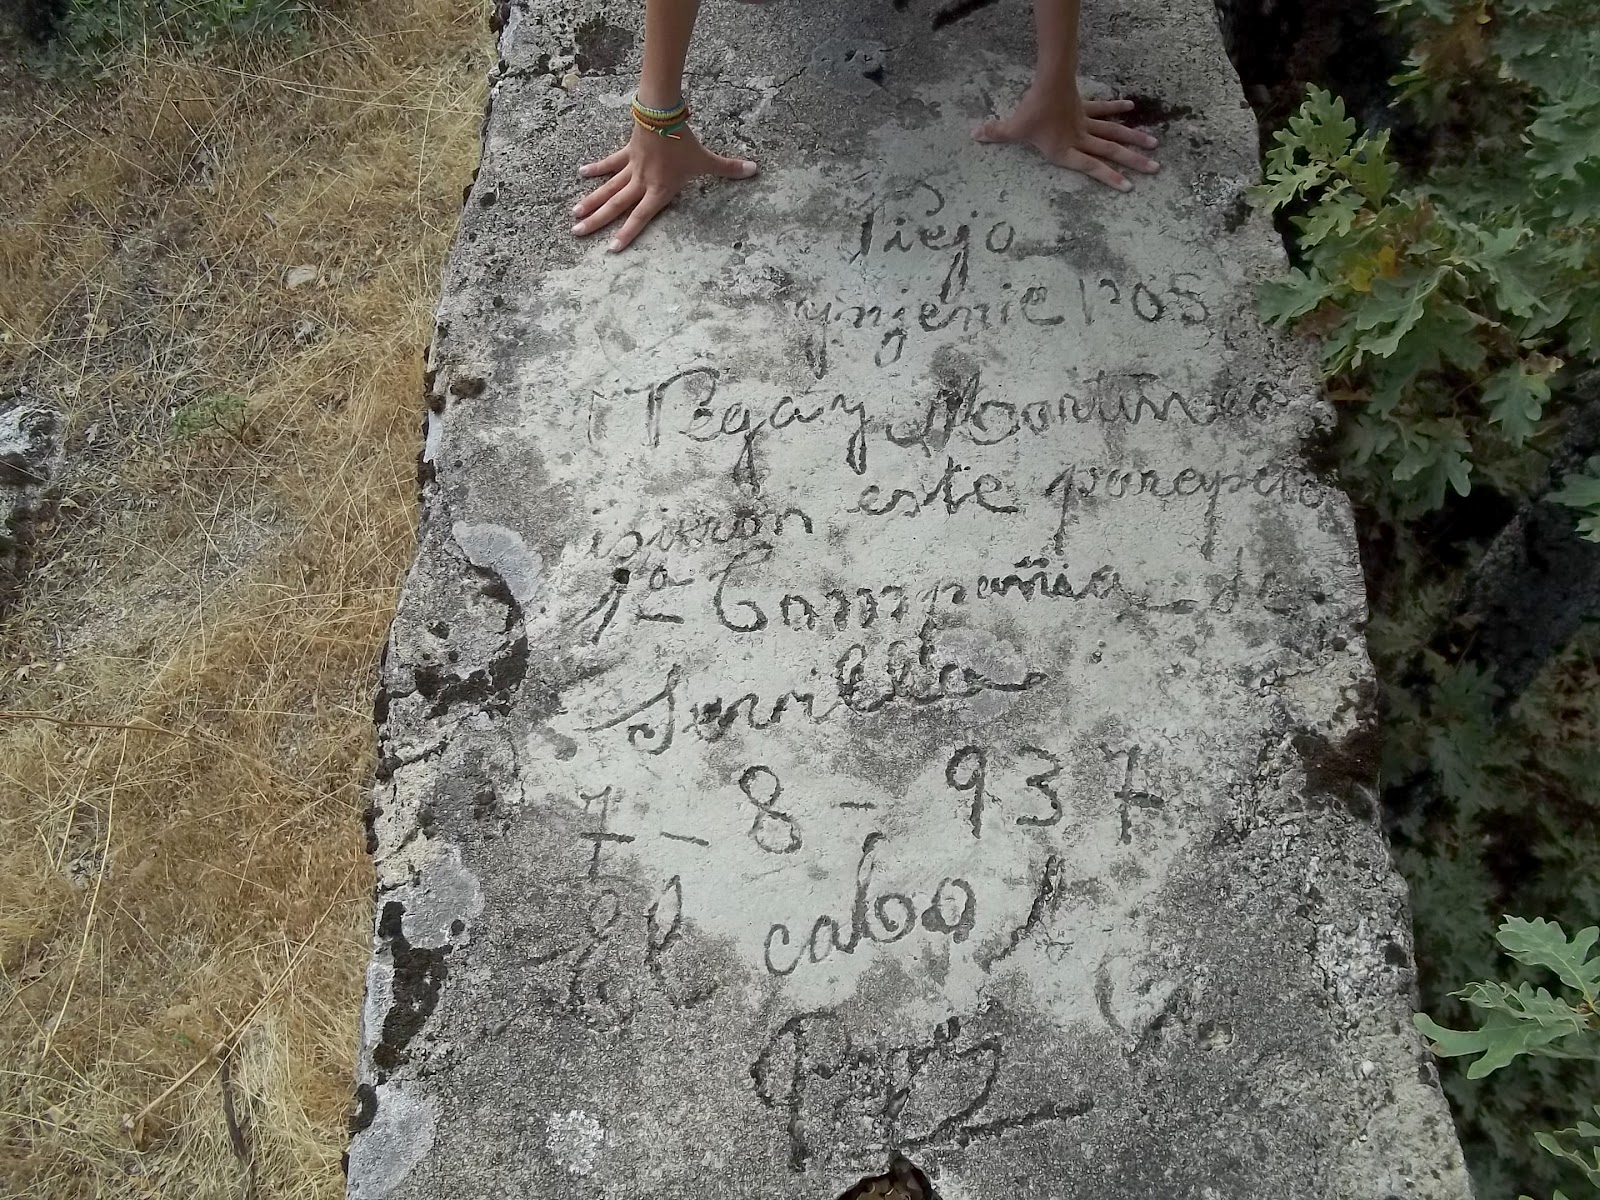 Piejo
ynjenieros
Vega y Martin
isieron este parepeto
1ª Compañia de
Sevilla
7-8-937
El cabo
Perez